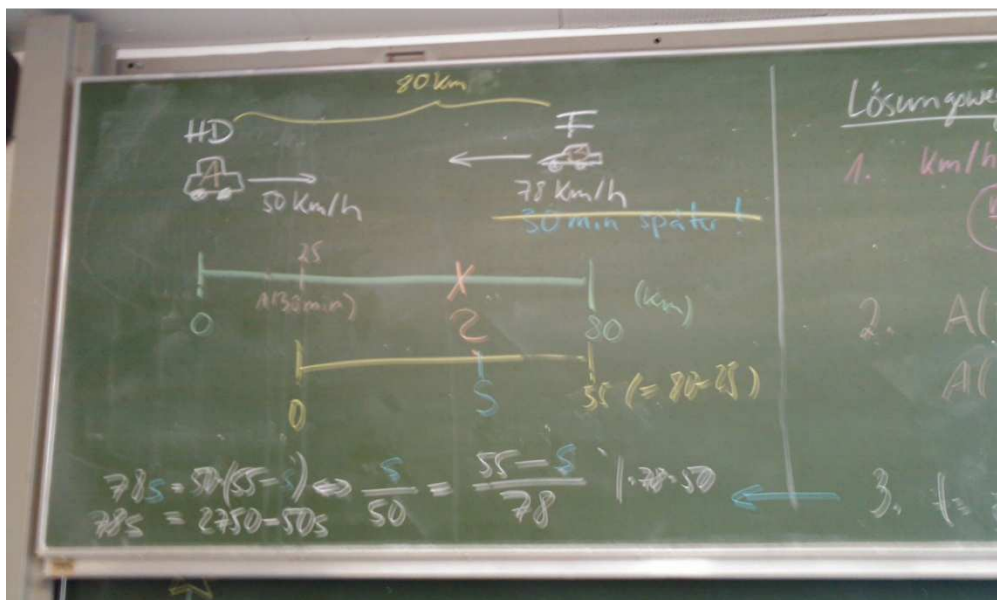 80 km
HD
F
A
B
50 Km/h
78 Km/h
30 min später!
25
A(30min)
0
Z
80
(km)
0
S
55 (= 80-25)
78s = 50·(55-s) ⇔ s/50 = (55-s)/78 |·78·50
78s = 2750-50s
Lösungswe
1. Km/h
2. A(
A(
3. t=